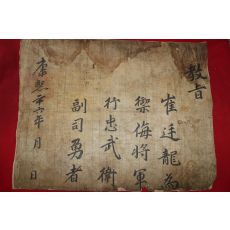 教旨
崔廷龍爲
禦侮將軍
行忠武衛
副司勇者
康熙六年 月 日